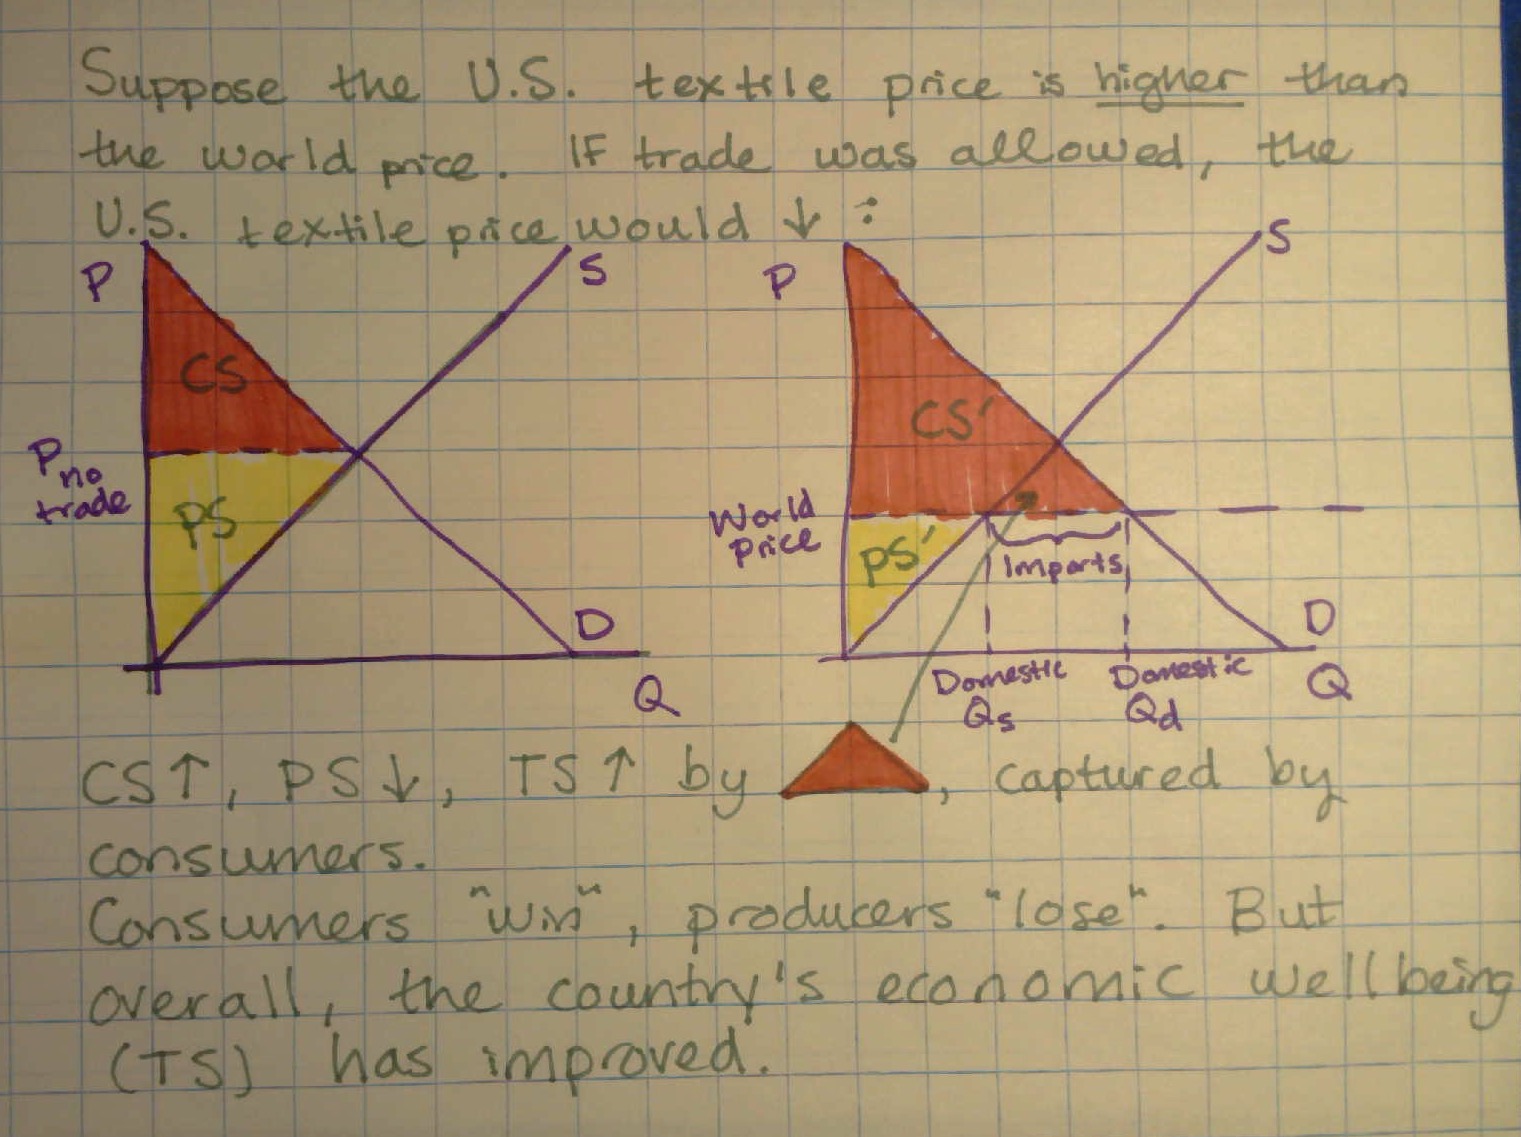 Suppose the U.S. textile price is higher than
the world price. IF trade was allowed, the
U.S. textile price would ↓ :
P
S
CS
P no
trade
PS
D
Q
P
S
CS'
World
Price
PS'
Imports
D
Domestic
Qs
Domestic
Qd
Q
CS↑, PS↓, TS↑ by , captured by
consumers.
Consumers "win", producers "lose". But
overall, the country's economic wellbeing
(TS) has improved.